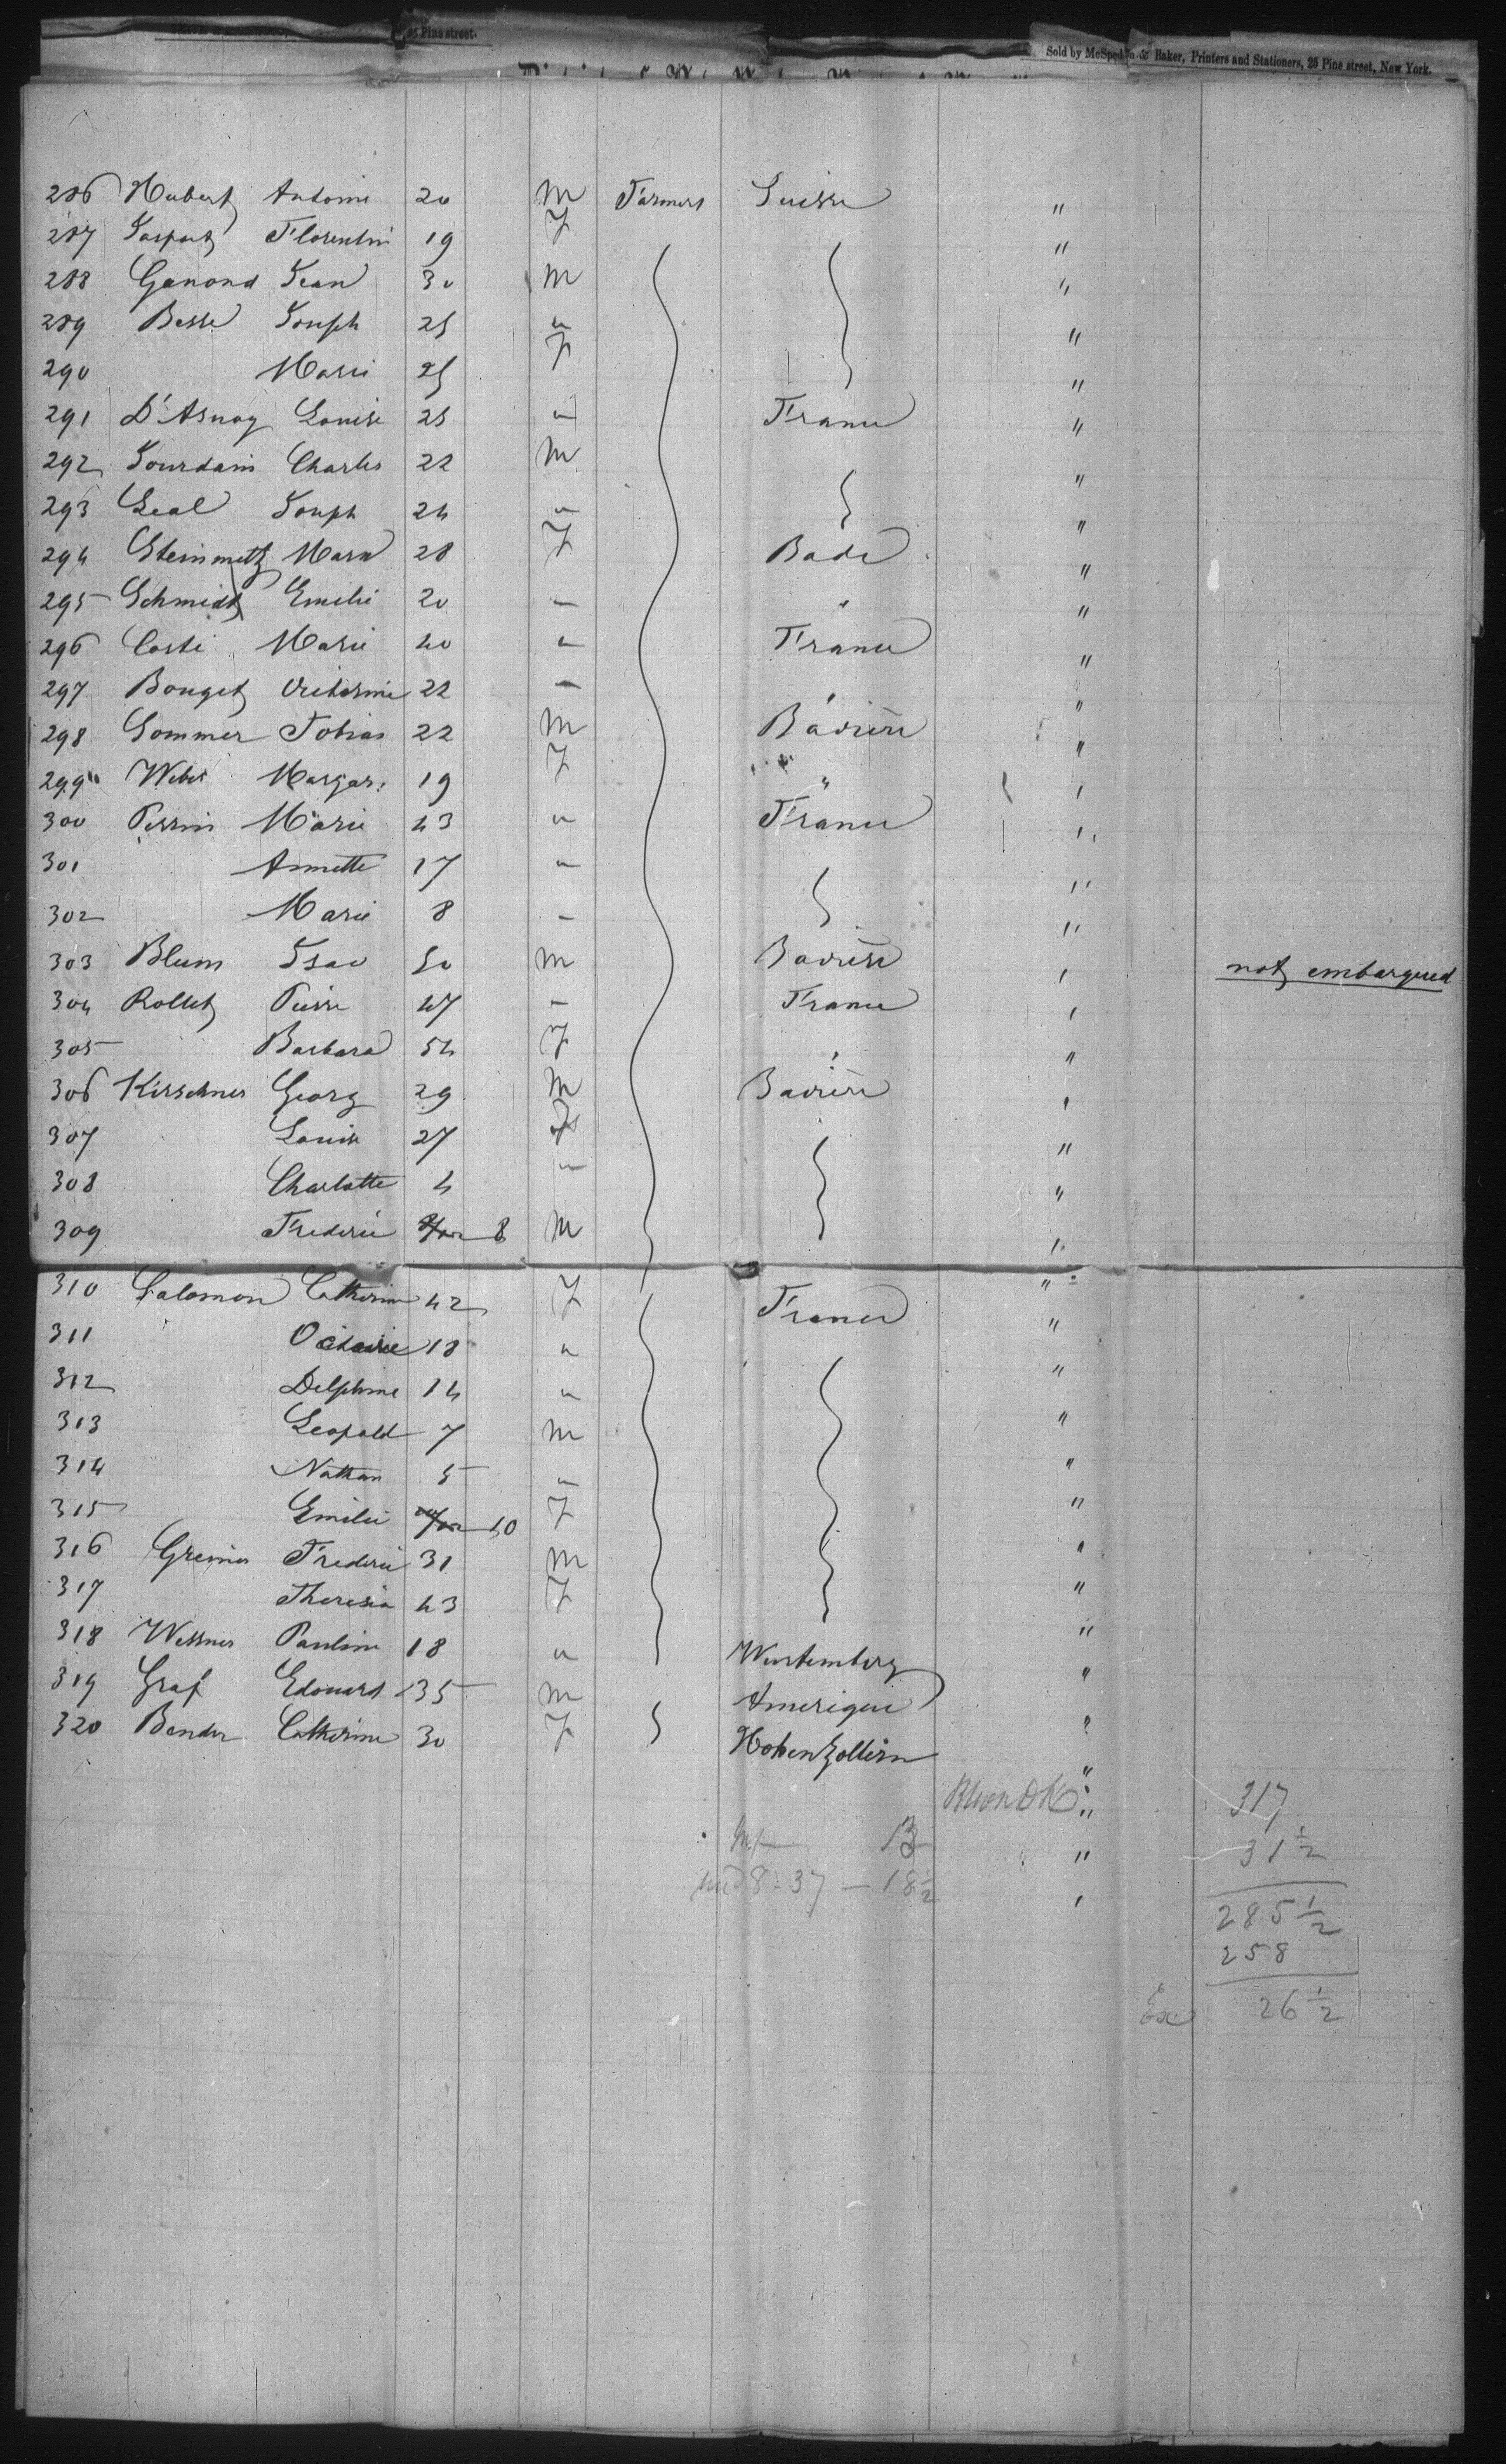 25 Pine street.
Sold by McSpedon & Baker, Printers and Stationers, 25 Pine street, New York.
286 Hubert Antoine 20 M Farmers Suisse "
287 Gaspart Florentin 19 F "
288 Genond Jean 30 M "
289 Besse Joseph 25 " "
290 Marie 25 F "
291 D'Asnoy Louise 25 " France "
292 Jourdain Charles 22 M "
293 Leal Joseph 24 " "
294 Steinmetz Maria 28 F Bade "
295 Schmidt Emilie 20 " " "
296 Coste Marie 40 " France "
297 Bouget Victorine 22 " "
298 Sommer Tobias 22 M Bavière "
299 Weber Margar. 19 F " "
300 Perrin Marie 43 " France "
301 Annette 17 " "
302 Marie 8 " "
303 Blum Isac 50 M Bavière " not embarqued
304 Rollet Pierre 47 " France "
305 Barbara 54 F "
306 Kirschner Georg 29 M Bavière "
307 Louise 27 F "
308 Charlotte 4 " "
309 Frederic 8 M "
310 Salomon Catherine 42 F France "
311 Octavie 18 " "
312 Delphine 14 " "
313 Leopold 7 M "
314 Nathan 5 " "
315 Emilie 10 F "
316 Greiner Frederic 31 M "
317 Theresia 43 F "
318 Wessner Pauline 18 " Wurtemberg "
319 Graf Edouard 35 M Amerique "
320 Bender Catherine 30 F Hohenzollern "
317
13 " 31 1/2
8-37 — 18 1/2 "
285 1/2
258
Ex 26 1/2